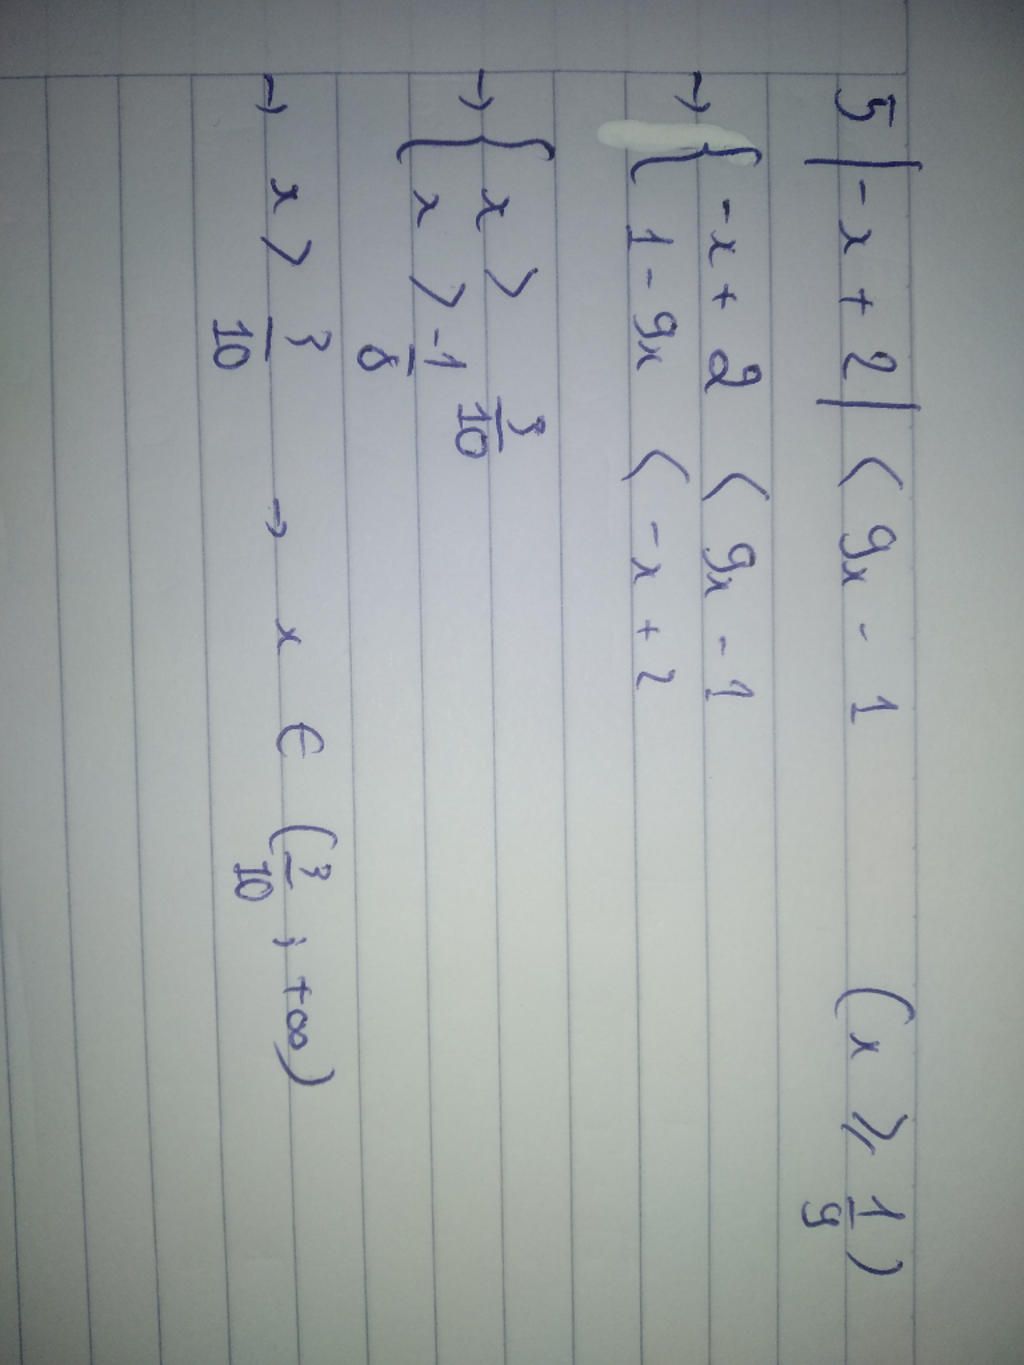 5 |-x + 2| < 9x - 1 (x ≥ 1/9)
→ { -x + 2 < 9x - 1
{ 1 - 9x < -x + 2
→ { x > 3/10
{ x > -1/8
→ x > 3/10 → x ∈ (3/10 ; +∞)